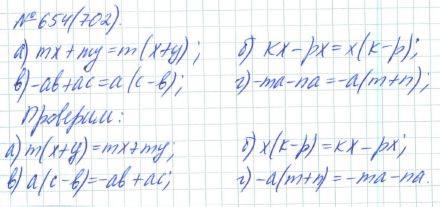 № 654(702).
а) mx + my = m(x+y); б) кx - px = x(к-p);
в) -ав + ac = a(c-в); г) -ma - na = -a(m+n);
Проверим:
а) m(x+y) = mx + my; б) x(к-p) = кx - px;
в) a(c-в) = -ав + ac; г) -a(m+n) = -ma - na.